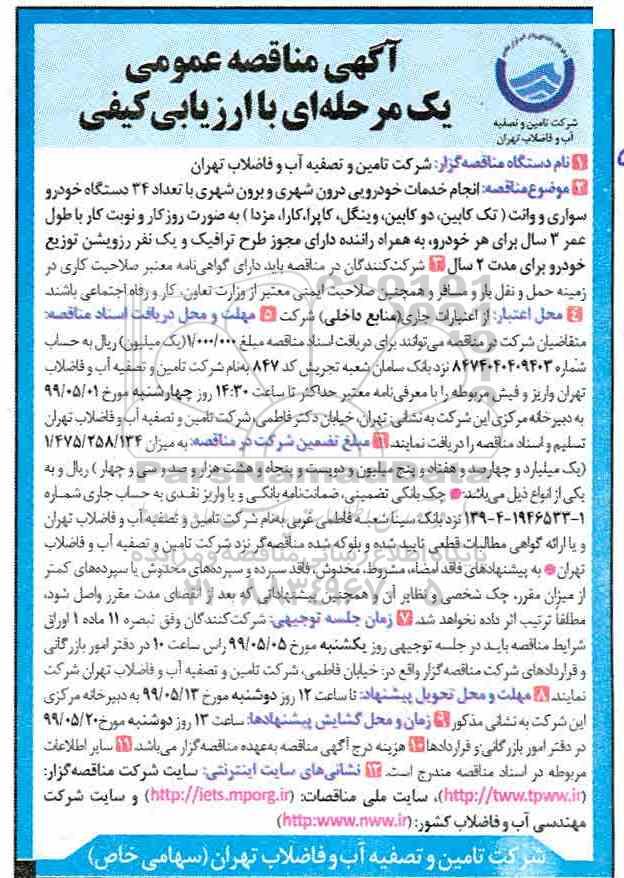 آگهی مناقصه عمومی
یک مرحله‌ای با ارزیابی کیفی
شرکت تامین و تصفیه
آب و فاضلاب تهران
۱ نام دستگاه مناقصه‌گزار: شرکت تامین و تصفیه آب و فاضلاب تهران
۲ موضوع مناقصه: انجام خدمات خودرویی درون شهری و برون شهری با تعداد ۳۴ دستگاه خودرو
سواری و وانت ( تک کابین، دو کابین، وینگل، کاپرا، کارا، مزدا ) به صورت روزکار و نوبت کار با طول
عمر ۳ سال برای هر خودرو، به همراه راننده دارای مجوز طرح ترافیک و یک نفر رزویشن توزیع
خودرو برای مدت ۲ سال ۳ شرکت‌کنندگان در مناقصه باید دارای گواهی‌نامه معتبر صلاحیت کاری در
زمینه حمل و نقل بار و مسافر و همچنین صلاحیت ایمنی معتبر از وزارت تعاون، کار و رفاه اجتماعی باشند.
۴ محل اعتبار: از اعتبارات جاری (منابع داخلی) شرکت ۵ مهلت و محل دریافت اسناد مناقصه:
متقاضیان شرکت در مناقصه می‌توانند برای دریافت اسناد مناقصه مبلغ ۱/۰۰۰/۰۰۰ (یک میلیون) ریال به حساب
شماره ۸۴۷۴۰۴۰۴۰۹۴۰۳ نزد بانک سامان شعبه تجریش کد ۸۴۷ به‌نام شرکت تامین و تصفیه آب و فاضلاب
تهران واریز و فیش مربوطه را با معرفی‌نامه معتبر حداکثر تا ساعت ۱۴:۳۰ روز چهارشنبه مورخ ۹۹/۰۵/۰۱
به دبیرخانه مرکزی این شرکت به نشانی: تهران، خیابان دکتر فاطمی، شرکت تامین و تصفیه آب و فاضلاب تهران
تسلیم و اسناد مناقصه را دریافت نمایند. ۶ مبلغ تضمین شرکت در مناقصه: به میزان ۱/۴۷۵/۲۵۸/۱۳۴
(یک میلیارد و چهارصد و هفتاد و پنج میلیون و دویست و پنجاه و هشت هزار و صد و سی و چهار ) ریال و به
یکی از انواع ذیل می‌باشد: ● چک بانکی تضمینی، ضمانت‌نامه بانکی و یا واریز نقدی به حساب جاری شماره
۱۳۹-۴-۱۹۴۶۵۳۳-۱ نزد بانک سینا شعبه فاطمی غربی به‌نام شرکت تامین و تصفیه آب و فاضلاب تهران
و یا ارائه گواهی مطالبات قطعی تایید شده و بلوکه شده مناقصه‌گر نزد شرکت تامین و تصفیه آب و فاضلاب
تهران ● به پیشنهادهای فاقد امضاء، مشروط، مخدوش، فاقد سپرده و سپرده‌های مخدوش یا سپرده‌های کمتر
از میزان مقرر، چک شخصی و نظایر آن و همچنین پیشنهاداتی که بعد از انقضای مدت مقرر واصل شود،
مطلقا ترتیب اثر داده نخواهد شد. ۷ زمان جلسه توجیهی: شرکت‌کنندگان وفق تبصره ۱۱ ماده ۱ اوراق
شرایط مناقصه باید در جلسه توجیهی روز یکشنبه مورخ ۹۹/۰۵/۰۵ راس ساعت ۱۰ در دفتر امور بازرگانی
و قراردادهای شرکت مناقصه‌گزار واقع در: خیابان فاطمی، شرکت تامین و تصفیه آب و فاضلاب تهران شرکت
نمایند. ۸ مهلت و محل تحویل پیشنهاد: تا ساعت ۱۲ روز دوشنبه مورخ ۹۹/۰۵/۱۳ به دبیرخانه مرکزی
این شرکت به نشانی مذکور ۹ زمان و محل گشایش پیشنهادها: ساعت ۱۳ روز دوشنبه مورخ ۹۹/۰۵/۲۰
در دفتر امور بازرگانی و قراردادها ۱۰ هزینه درج آگهی مناقصه به‌عهده مناقصه‌گزار می‌باشد. ۱۱ سایر اطلاعات
مربوطه در اسناد مناقصه مندرج است. ۱۲ نشانی‌های سایت اینترنتی: سایت شرکت مناقصه‌گزار:
(http://tww.tpww.ir)، سایت ملی مناقصات: (http://iets.mporg.ir) و سایت شرکت
مهندسی آب و فاضلاب کشور: (http:www.nww.ir)
شرکت تامین و تصفیه آب و فاضلاب تهران (سهامی خاص)
ParsNamadData
پایگاه اطلاع رسانی مناقصه و مزایده